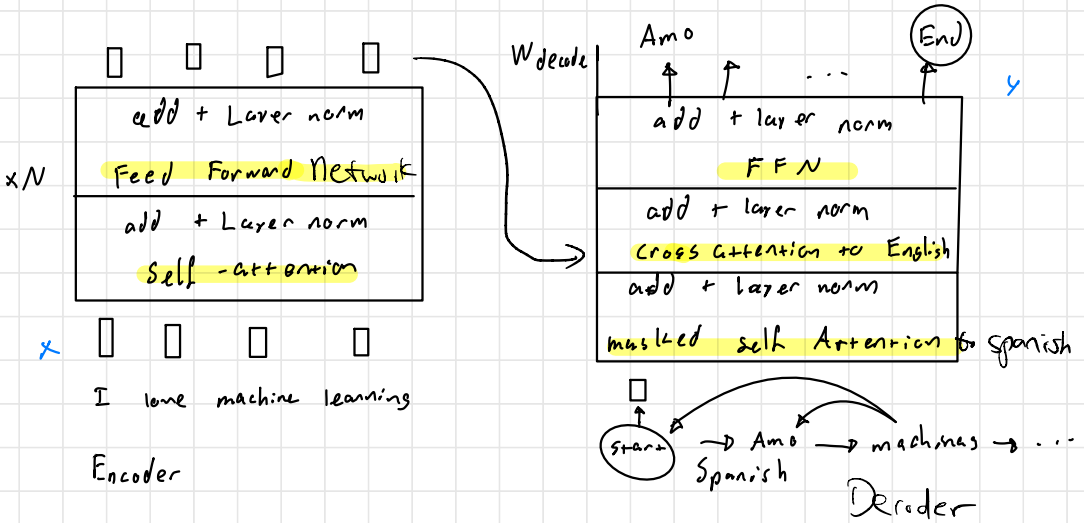 add + Layer norm
xN
Feed Forward Network
add + Layer norm
Self-attention
x
I love machine learning
Encoder
Wdecode
Amo
...
End
y
add + layer norm
FFN
add + layer norm
Cross attention to English
add + layer norm
masked self Attention to Spanish
Start → Amo → machinas → ...
Spanish
Decoder